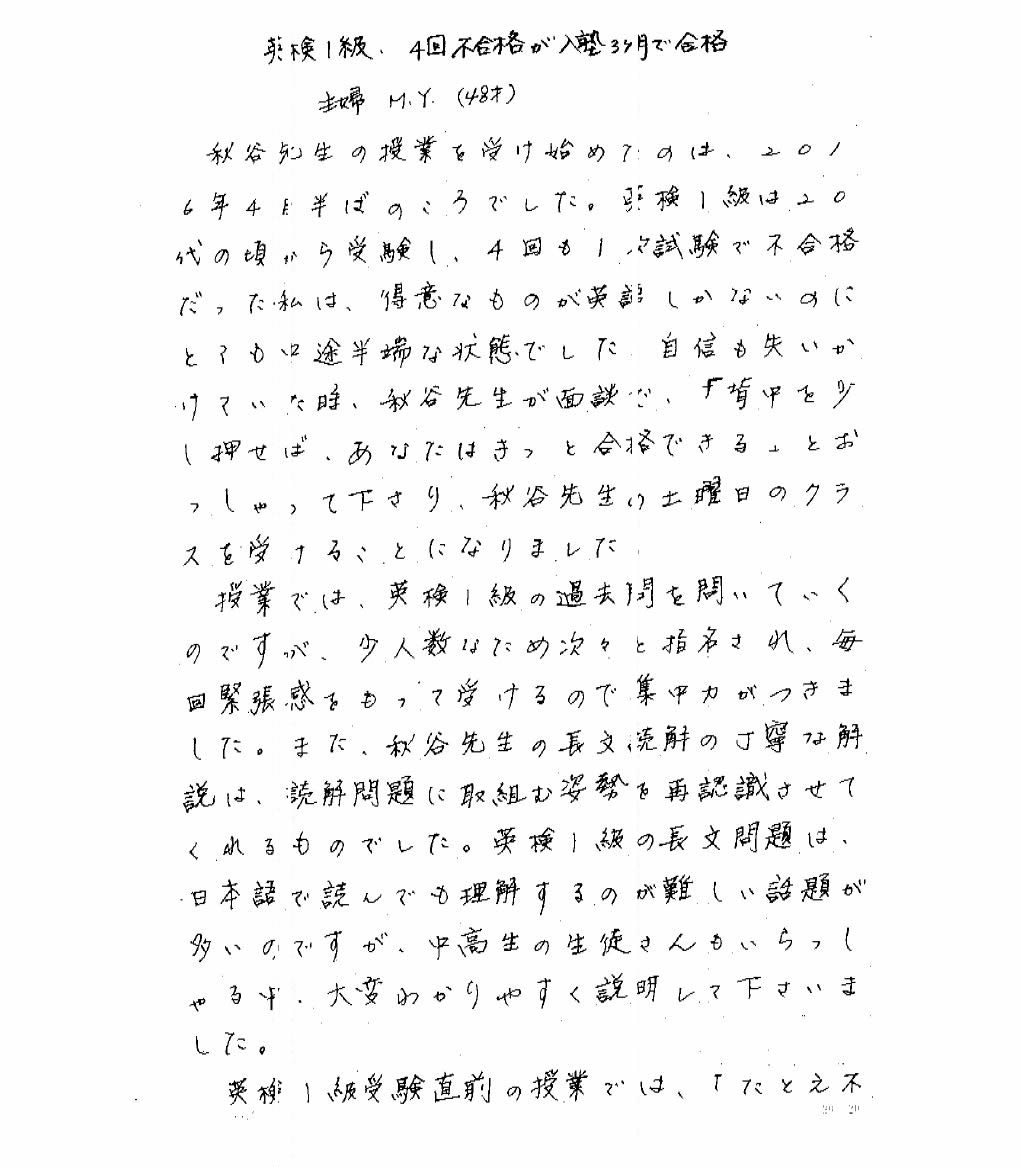 英検1級、4回不合格が入塾3ヶ月で合格
主婦 M.Y. (48才)
秋谷先生の授業を受け始めてのは、201
6年4月半ばのころでした。英検1級は20
代の頃から受験し、4回も1次試験で不合格
だった私は、得意なものが英語しかないのに
とても中途半端な状態でした 自信も失いか
けていた時、秋谷先生が面談で、「背中を少
し押せば、あなたはきっと合格できる」とお
っしゃって下さり、秋谷先生の土曜日のクラ
スを受けることになりました
授業では、英検1級の過去問を問いていく
のですが、少人数なため次々と指名され、毎
回緊張感をもって受けるので集中力がつきま
した。また、秋谷先生の長文読解の丁寧な解
説は、読解問題に取組む姿勢を再認識させて
くれるものでした。英検1級の長文問題は、
日本語で読んでも理解するのが難しい話題が
多いのですが、中高生の生徒さんもいらっし
ゃる中、大変わかりやすく説明して下さいま
した。
英検1級受験直前の授業では、「たとえ不